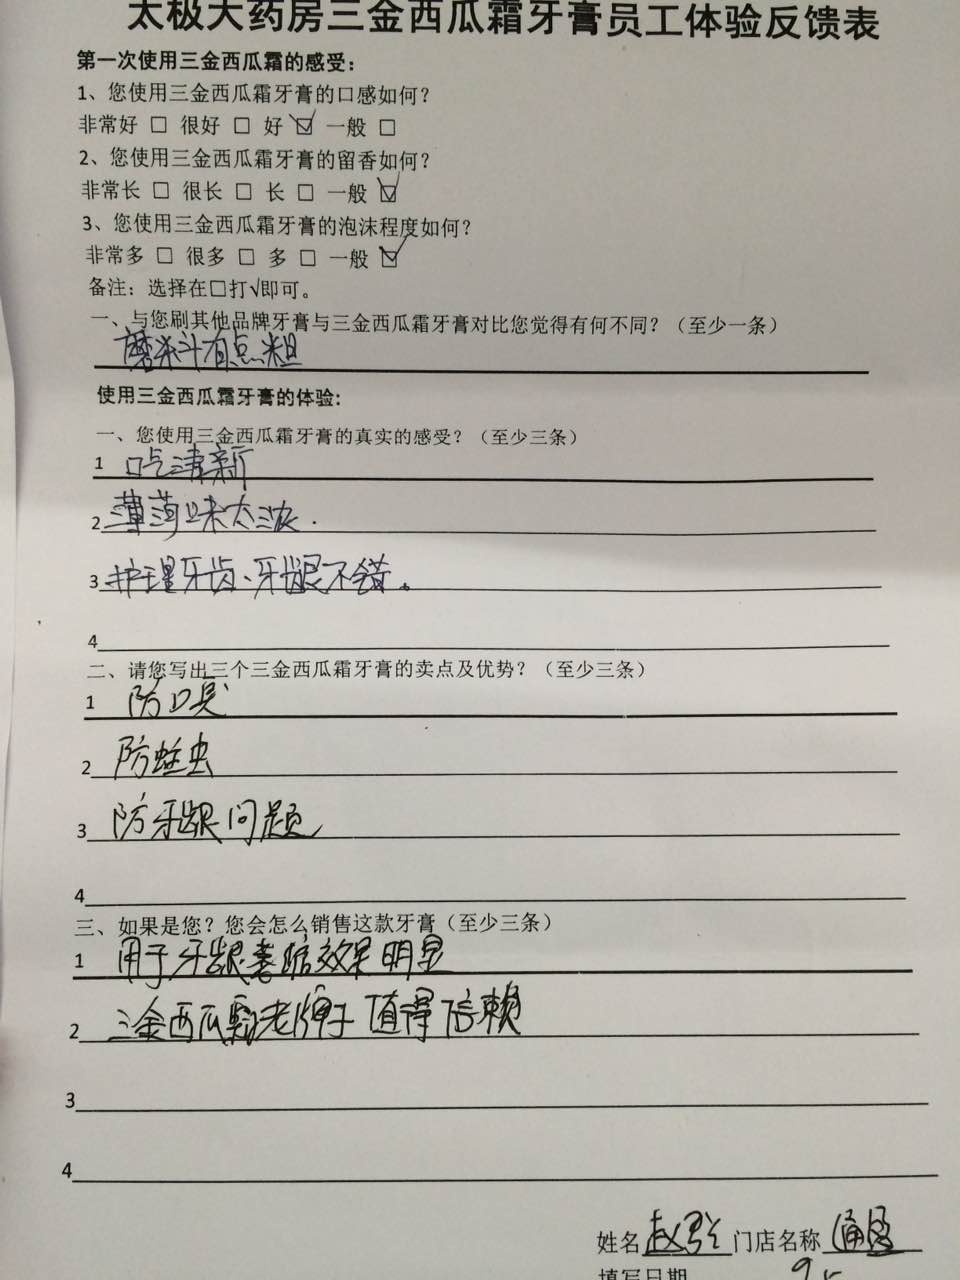 太极大药房三金西瓜霜牙膏员工体验反馈表
第一次使用三金西瓜霜的感受：
1、您使用三金西瓜霜牙膏的口感如何？
非常好 □ 很好 □ 好 ☑ 一般 □
2、您使用三金西瓜霜牙膏的留香如何？
非常长 □ 很长 □ 长 □ 一般 ☑
3、您使用三金西瓜霜牙膏的泡沫程度如何？
非常多 □ 很多 □ 多 □ 一般 ☑
备注：选择在□打√即可。
一、与您刷其他品牌牙膏与三金西瓜霜牙膏对比您觉得有何不同？（至少一条）
磨杀斗有点粗
使用三金西瓜霜牙膏的体验:
一、您使用三金西瓜霜牙膏的真实的感受？（至少三条）
1 口气清新
2 薄荷味太浓.
3 护理牙齿、牙龈不错。
4
二、请您写出三个三金西瓜霜牙膏的卖点及优势？（至少三条）
1 防口臭
2 防蛀虫
3 防牙龈问题
4
三、如果是您？您会怎么销售这款牙膏（至少三条）
1 用于牙龈萎缩效果明显
2 三金西瓜霜老牌子值得信赖
3
4
姓名 赵 门店名称
填写日期 9